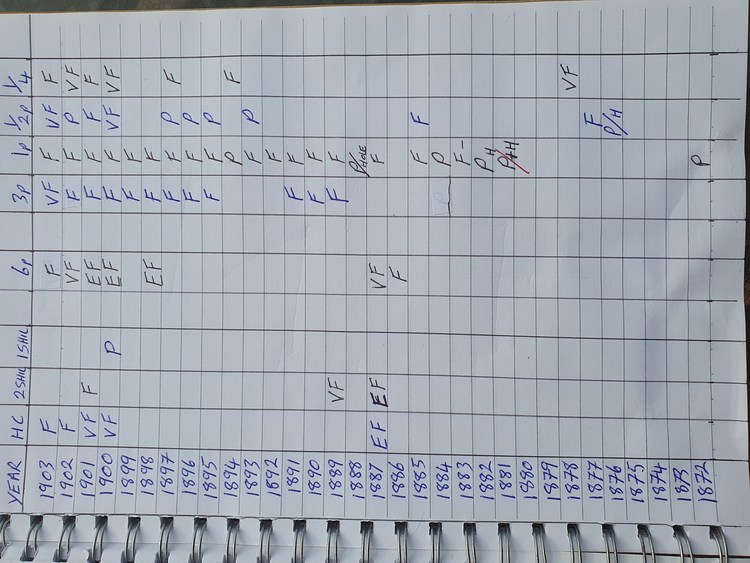 YEAR HC 2SHIL 1SHIL 6p 3p 1p 1/2p 1/4
1903 F F VF F VF F
1902 F VF F F P VF
1901 VF F EF F F F F
1900 VF P EF F F VF VF
1899 F F
1898 EF F F
1897 F F P F
1896 F F P
1895 F F P
1894 P F
1893 F P
1892 F
1891 F F
1890 F F
1889 VF F F
1888 P/HOLE
1887 EF EF VF F
1886 F
1885 F F
1884 P
1883 F-
1882 PH
1881 P+H
1880
1879
1878 VF
1877 F
1876 P/H
1875
1874
1873
1872 P